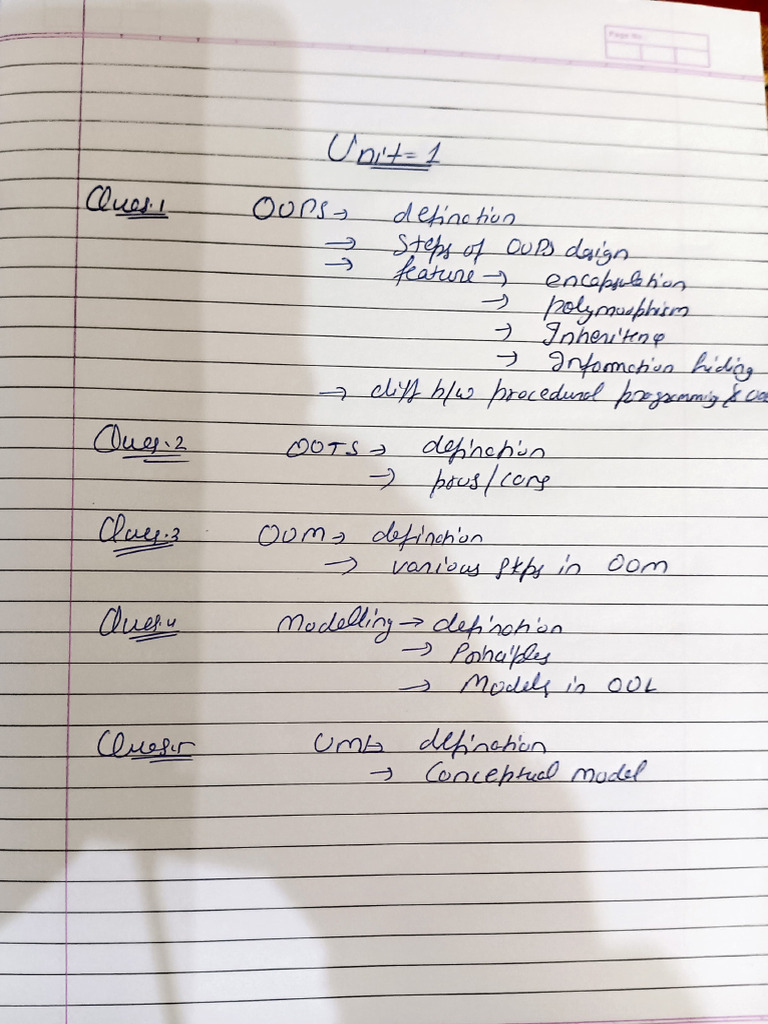 Page No :
Unit = 1
Ques.1 OOPS → defination
→ Steps of OOPs design
→ feature → encapsulation
→ polymorphism
→ Inheritence
→ Information hiding
→ diff b/w procedural programming &
Ques.2 OOTS → defination
→ pros/cons
Ques.3 OOM → defination
→ various steps in OOM
Ques.4 Modelling → defination
→ Principles
→ Models in OOL
Ques.5 UML → defination
→ Conceptual model